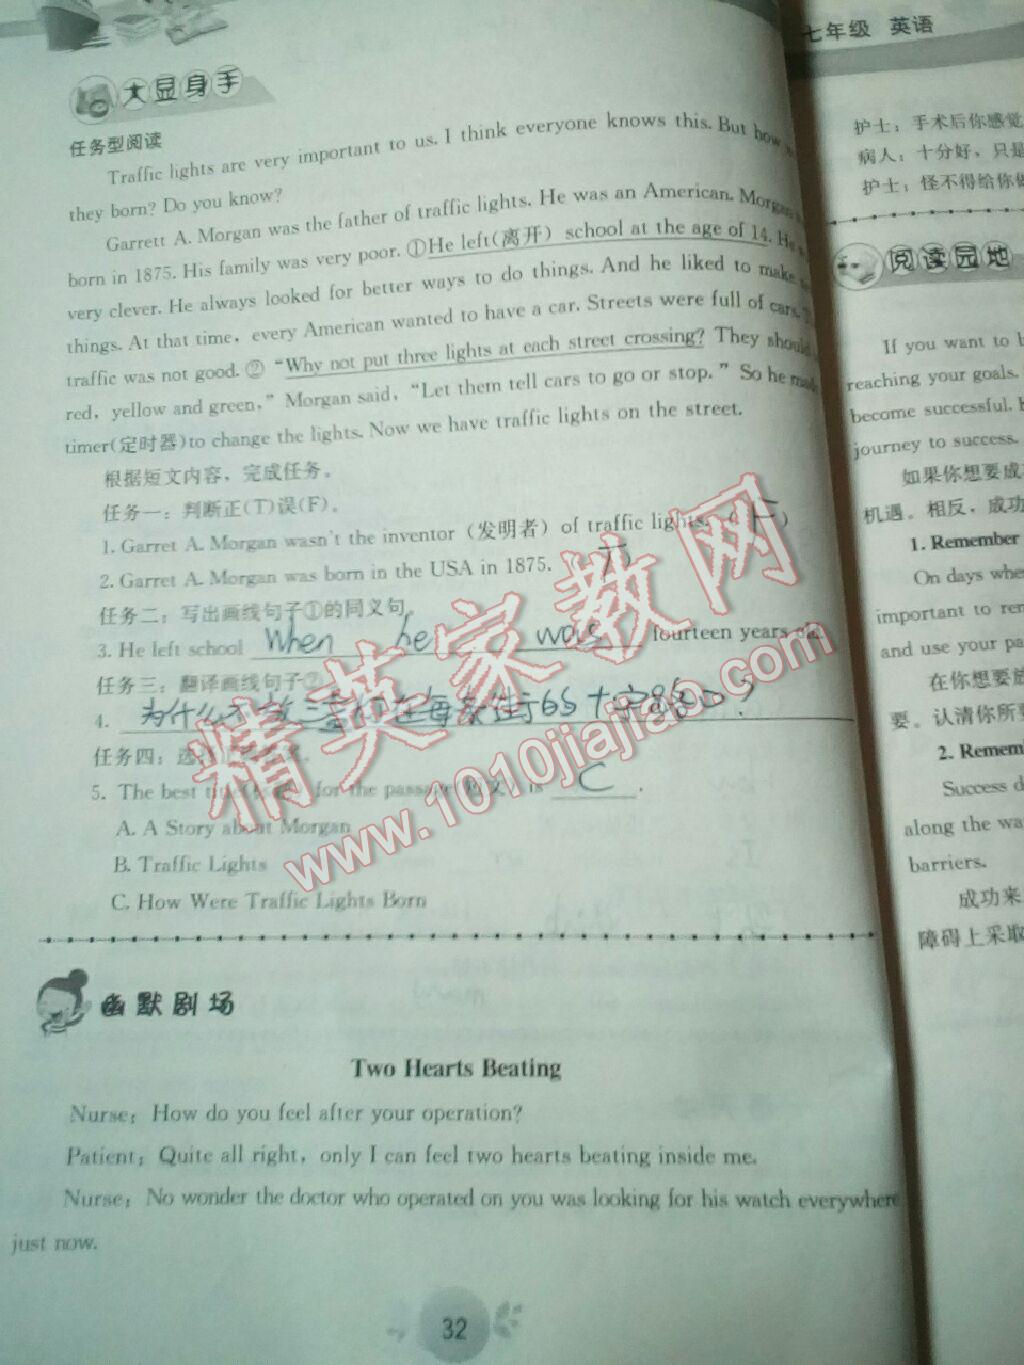 大显身手
任务型阅读
Traffic lights are very important to us. I think everyone knows this. But how
they born? Do you know?
Garrett A. Morgan was the father of traffic lights. He was an American. Morgan
born in 1875. His family was very poor. ①He left(离开) school at the age of 14. He
very clever. He always looked for better ways to do things. And he liked to make
things. At that time, every American wanted to have a car. Streets were full of cars.
traffic was not good. ② "Why not put three lights at each street crossing? They should
red, yellow and green," Morgan said, "Let them tell cars to go or stop." So he made
timer(定时器)to change the lights. Now we have traffic lights on the street.
根据短文内容，完成任务。
任务一：判断正(T)误(F)。
1. Garret A. Morgan wasn't the inventor (发明者) of traffic lights. ( F )
2. Garret A. Morgan was born in the USA in 1875. ( T )
任务二：写出画线句子①的同义句。
3. He left school when he was fourteen years old.
任务三：翻译画线句子②
4. 为什么不放三盏灯在每条街的十字路口？
任务四：选
5. The best for the passage(短文) is C.
A. A Story about Morgan
B. Traffic Lights
C. How Were Traffic Lights Born
幽默剧场
Two Hearts Beating
Nurse: How do you feel after your operation?
Patient: Quite all right, only I can feel two hearts beating inside me.
Nurse: No wonder the doctor who operated on you was looking for his watch everywhere
just now.
32
七年级 英语
护士：手术后你感觉
病人：十分好，只是
护士：怪不得给你做
阅读园地
If you want to
reaching your goals.
become successful.
journey to success.
如果你想要成
机遇。相反，成功
1. Remember
On days when
important to
and use your
在你想要放
要。认清你所
2.
Success
along the
barriers.
成功来
障碍上采取
精英家教网
www.1010jiajiao.com